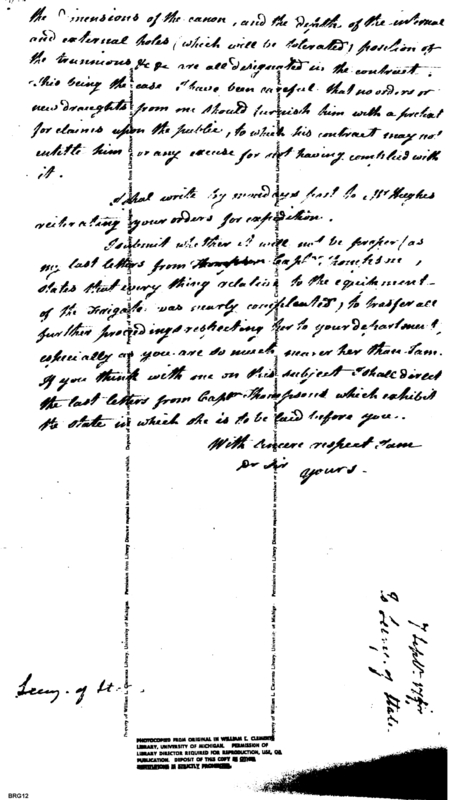 the dimensions of the canon, and the depths of the internal
and external holes (which will be tolerated) position of
the trunnions &c &c are all designated in the contract.
This being the case I have been careful that no orders or
new draughts from one should furnish him with a pretext
for claims upon the public, to which his contract may not
entitle him or any excuse for not having complied with
it.
I shal write by mondays post to Mr Hughes
reiterating your orders for expedition.
I submit whether it will not be proper (as
my last letters from Capt. Thompson,
states that every thing relative to the equipment
of the frigate was nearly completed,) to trasfer all
further proceedings respecting her to your department,
especially as you are so much nearer her than I am.
If you think with one on this subject I shall direct
the last letters from Capt Thompsons which exhibit
the state in which she is to be laid before you..
With sincere respect I am
Dr Sir
yours.
Secy. of St
7 Sept.
To Secy. of State.
Property of William L. Clements Library, University of Michigan. Permission from Library Director required to reproduce or publish.
PHOTOCOPIED FROM ORIGINAL IN WILLIAM L. CLEMENTS
LIBRARY, UNIVERSITY OF MICHIGAN. PERMISSION OF
LIBRARY DIRECTOR REQUIRED FOR REPRODUCTION, USE, OR
PUBLICATION. DEPOSIT OF THIS COPY IN OTHER
INSTITUTIONS IS STRICTLY PROHIBITED.
BRG12